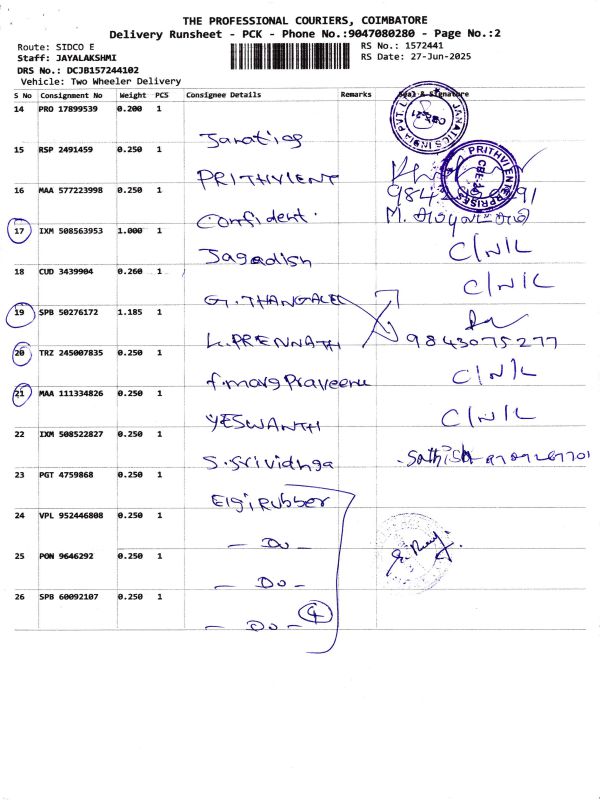 THE PROFESSIONAL COURIERS, COIMBATORE
Delivery Runsheet - PCK - Phone No.:9047080280 - Page No.:2
Route: SIDCO E
RS No.: 1572441
Staff: JAYALAKSHMI
RS Date: 27-Jun-2025
DRS No.: DCJB157244102
Vehicle: Two Wheeler Delivery
S No Consignment No Weight PCS Consignee Details Remarks Seal & Signature
14 PRO 17899539 0.200 1
15 RSP 2491459 0.250 1 PRITHVIENT
16 MAA 577223998 0.250 1 Confident.
17 IXM 508563953 1.000 1 Jagadish C/N/L
18 CUD 3439904 0.260 1 G.THANGAVEL C/N/L
19 SPB 50276172 1.185 1 K.PRENNATH 9843075277
20 TRZ 245007835 0.250 1 C/N/L
21 MAA 111334826 0.250 1 YESWANTH C/N/L
22 IXM 508522827 0.250 1 S.Srividhya Sathish
23 PGT 4759868 0.250 1 Elgi Rubber
24 VPL 952446808 0.250 1 - Do -
25 PON 9646292 0.250 1 - Do -
26 SPB 60092107 0.250 1 - Do - 4
JANATICS INDIA PVT. L
CBE-21
PRITHVI ENTERPRISES